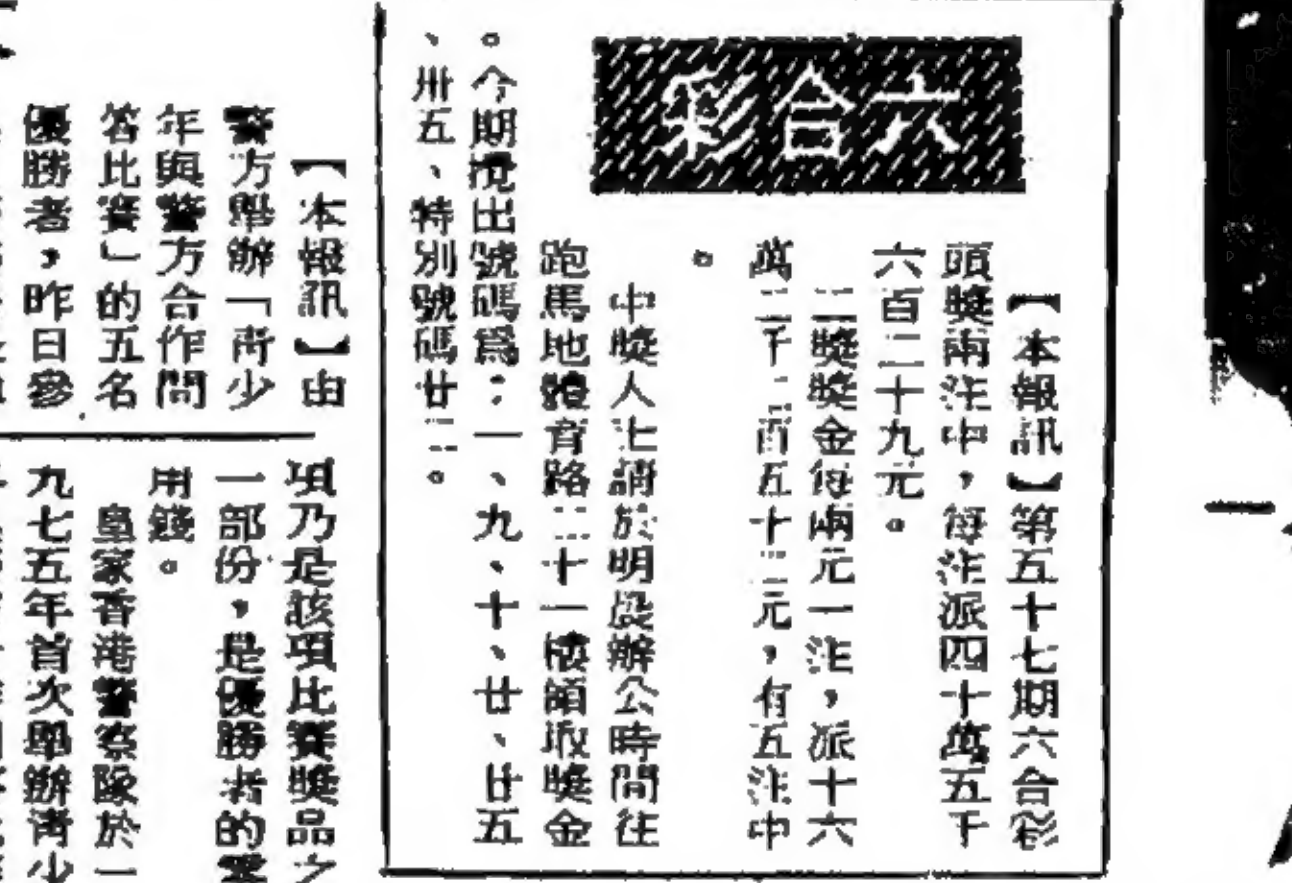 六合彩
【本報訊】第五十七期六合彩
頭獎兩注中,每注派四十萬五千
六百二十九元。
二獎獎金每兩元一注,派十六
萬二千二百五十二元,有五注中
。
中獎人士請於明晨辦公時間往
跑馬地體育路二十一樓領取獎金
。今期攪出號碼爲:一、九、十、廿、廿五
、卅五、特別號碼廿二。
【本報訊】由
警方舉辦「青少
年與警方合作問
答比賽」的五名
優勝者,昨日參
項乃是該項比賽獎品之
一部份,是優勝者的零
用錢。
皇家香港警察隊於一
九七五年首次舉辦青少